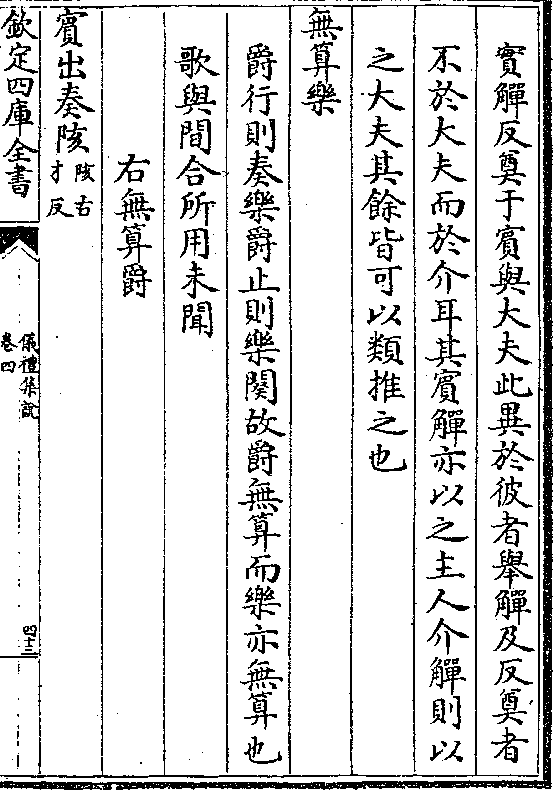 實觶反奠于賓與大夫此異於彼者舉觶及反奠者
不於大夫而於介耳其賓觶亦以之主人介觶則以
之大夫其餘皆可以類推之也
無算樂
爵行則奏樂爵止則樂闋故爵無算而樂亦無算也
歌與間合所用未聞
右無算爵
賓出奏陔陔古才反
欽定四庫全書
儀禮集說
卷四
四十三